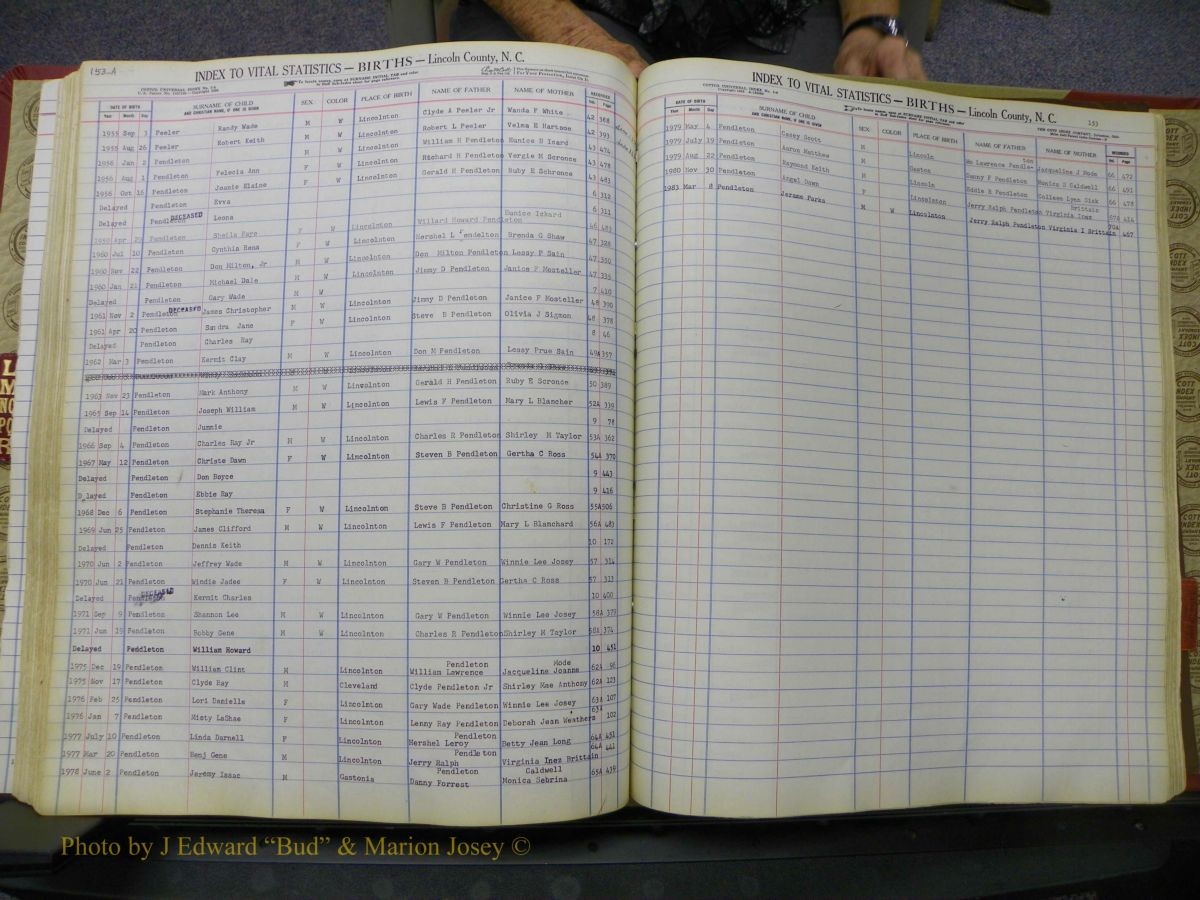 153-A
INDEX TO VITAL STATISTICS — BIRTHS — Lincoln County, N. C.
DATE OF BIRTH SURNAME OF CHILD SEX COLOR PLACE OF BIRTH NAME OF FATHER NAME OF MOTHER RECORDED
Year Month Day AND CHRISTIAN NAME, IF ONE IS GIVEN Vol. Page
1955 Sep 3 Peeler Randy Wade M W Lincolnton Clyde A Peeler Jr Wanda F White 42 368
1955 Aug 26 Peeler Robert Keith M W Lincolnton Robert L Peeler Velma E Hartsoe 42 393
1956 Jan 2 Pendleton Felecia Ann F W Lincolnton William H Pendleton Eunice B Inard 43 474
1956 Aug 1 Pendleton Joanie Elaine F W Lincolnton Richard H Pendleton Vergie M Scronce 43 478
1956 Oct 16 Pendleton Gerald H Pendleton Ruby E Schronce 43 483
Delayed Pendleton Evva 6 312
Delayed Pendleton DECEASED Leona 6 311
Pendleton Sheila Faye F W Lincolnton Willard Howard Pendleton Eunice Ickard 46 483
1960 Jul 10 Pendleton Cynthia Rena F W Lincolnton Hershel L Pendelton Brenda G Shaw 47 328
1960 Nov 22 Pendleton Don Milton, Jr M W Lincolnton Don Milton Pendleton Lessy P Sain 47 350
1960 Jan 21 Pendleton Michael Dale M W Lincolnton Jimmy D Pendleton Janice F Mosteller 47 335
Delayed Pendleton Gary Wade 7 410
1961 Nov 2 Pendleton DECEASED James Christopher M W Lincolnton Jimmy D Pendleton Janice F Mosteller 48 390
1961 Apr 20 Pendleton Sandra Jane F W Lincolnton Steve B Pendleton Olivia J Sigmon 48 378
Delayed Pendleton Charles Ray 8 46
1962 Mar 3 Pendleton Kermit Clay M W Lincolnton Don M Pendleton Lessy Prue Sain 49A 357
1963 Nov 23 Pendleton Mark Anthony M W Linwolnton Gerald H Pendleton Ruby E Scronce 50 389
1965 Sep 14 Pendleton Joseph William M W Lincolnton Lewis F Pendleton Mary L Blancher 52A 339
Delayed Pendleton Junnie 9 78
1966 Sep 4 Pendleton Charles Ray Jr M W Lincolnton Charles R Pendleton Shirley M Taylor 53A 362
1967 May 12 Pendleton Christe Dawn F W Lincolnton Steven B Pendleton Gertha C Ross 54A 370
Delayed Pendleton Don Boyce 9 443
D layed Pendleton Ebbie Ray 9 416
1968 Dec 6 Pendleton Stephanie Theresa F W Lincolnton Steve B Pendleton Christine G Ross 55A 506
1969 Jun 25 Pendleton James Clifford M W Lincolnton Lewis F Pendleton Mary L Blanchard 56A 483
Delayed Pendleton Dennis Keith 10 172
1970 Jun 2 Pendleton Jeffrey Wade M W Lincolnton Gary W Pendleton Winnie Lee Josey 57 314
1970 Jun 21 Pendleton Windie Jadee F W Lincolnton Steven B Pendleton Gertha C Ross 57 313
Delayed Pendleton DECEASED Kermit Charles 10 400
1971 Sep 9 Pendleton Shannon Lee M W Lincolnton Gary W Pendleton Winnie Lee Josey 58A 379
1971 Jun 19 Pendleton Bobby Gene M W Lincolnton Charles R Pendleton Shirley M Taylor 58A 374
Delayed Peddleton William Howard 10 451
1975 Dec 19 Pendleton William Clint M Lincolnton Pendleton William Lawrence Mode Jacqueline Joanne 62A 96
1975 Nov 17 Pendleton Clyde Ray M Cleveland Clyde Pendleton Jr Shirley Mae Anthony 62A 123
1976 Feb 25 Pendleton Lori Danielle F Lincolnton Gary Wade Pendleton Winnie Lee Josey 63A 107
1976 Jan 7 Pendleton Misty LaShae F Lincolnton Lenny Ray Pendleton Deborah Jean Weathers 63A 102
1977 July 10 Pendleton Linda Darnell F Lincolnton Pendleton Hershel Leroy Betty Jean Long 64A 451
1977 Mar 20 Pendleton Benj Gene M Lincolnton Pendleton Jerry Ralph Virginia Inez Brittain 64A 441
1978 June 2 Pendleton Jeremy Isaac M Gastonia Pendleton Danny Forrest Caldwell Monica Sebrina 65A 439
INDEX TO VITAL STATISTICS — BIRTHS — Lincoln County, N. C.
153
DATE OF BIRTH SURNAME OF CHILD SEX COLOR PLACE OF BIRTH NAME OF FATHER NAME OF MOTHER RECORDED
Year Month Day AND CHRISTIAN NAME, IF ONE IS GIVEN Vol. Page
1979 May 4 Pendleton Casey Scott M Lincoln Wm Lawrence Pendle-ton Jacqueline J Mode 66 472
1979 July 19 Pendleton Aaron Matthew M Gaston Danny F Pendleton Monica S Caldwell 66 491
1979 Aug 22 Pendleton Raymond Keith M Lincoln Eddie R Pendleton Colleen Lynn Sisk 66 478
1980 Nov 30 Pendleton Angel Dawn F Lincolnton Jerry Ralph Pendleton Virginia Inez Brittain 67A 414
1983 Mar 8 Pendleton Jerame Parks M W Lincolnton Jerry Ralph Pendleton Virginia I Brittain 70A 467
Photo by J Edward “Bud” & Marion Josey ©